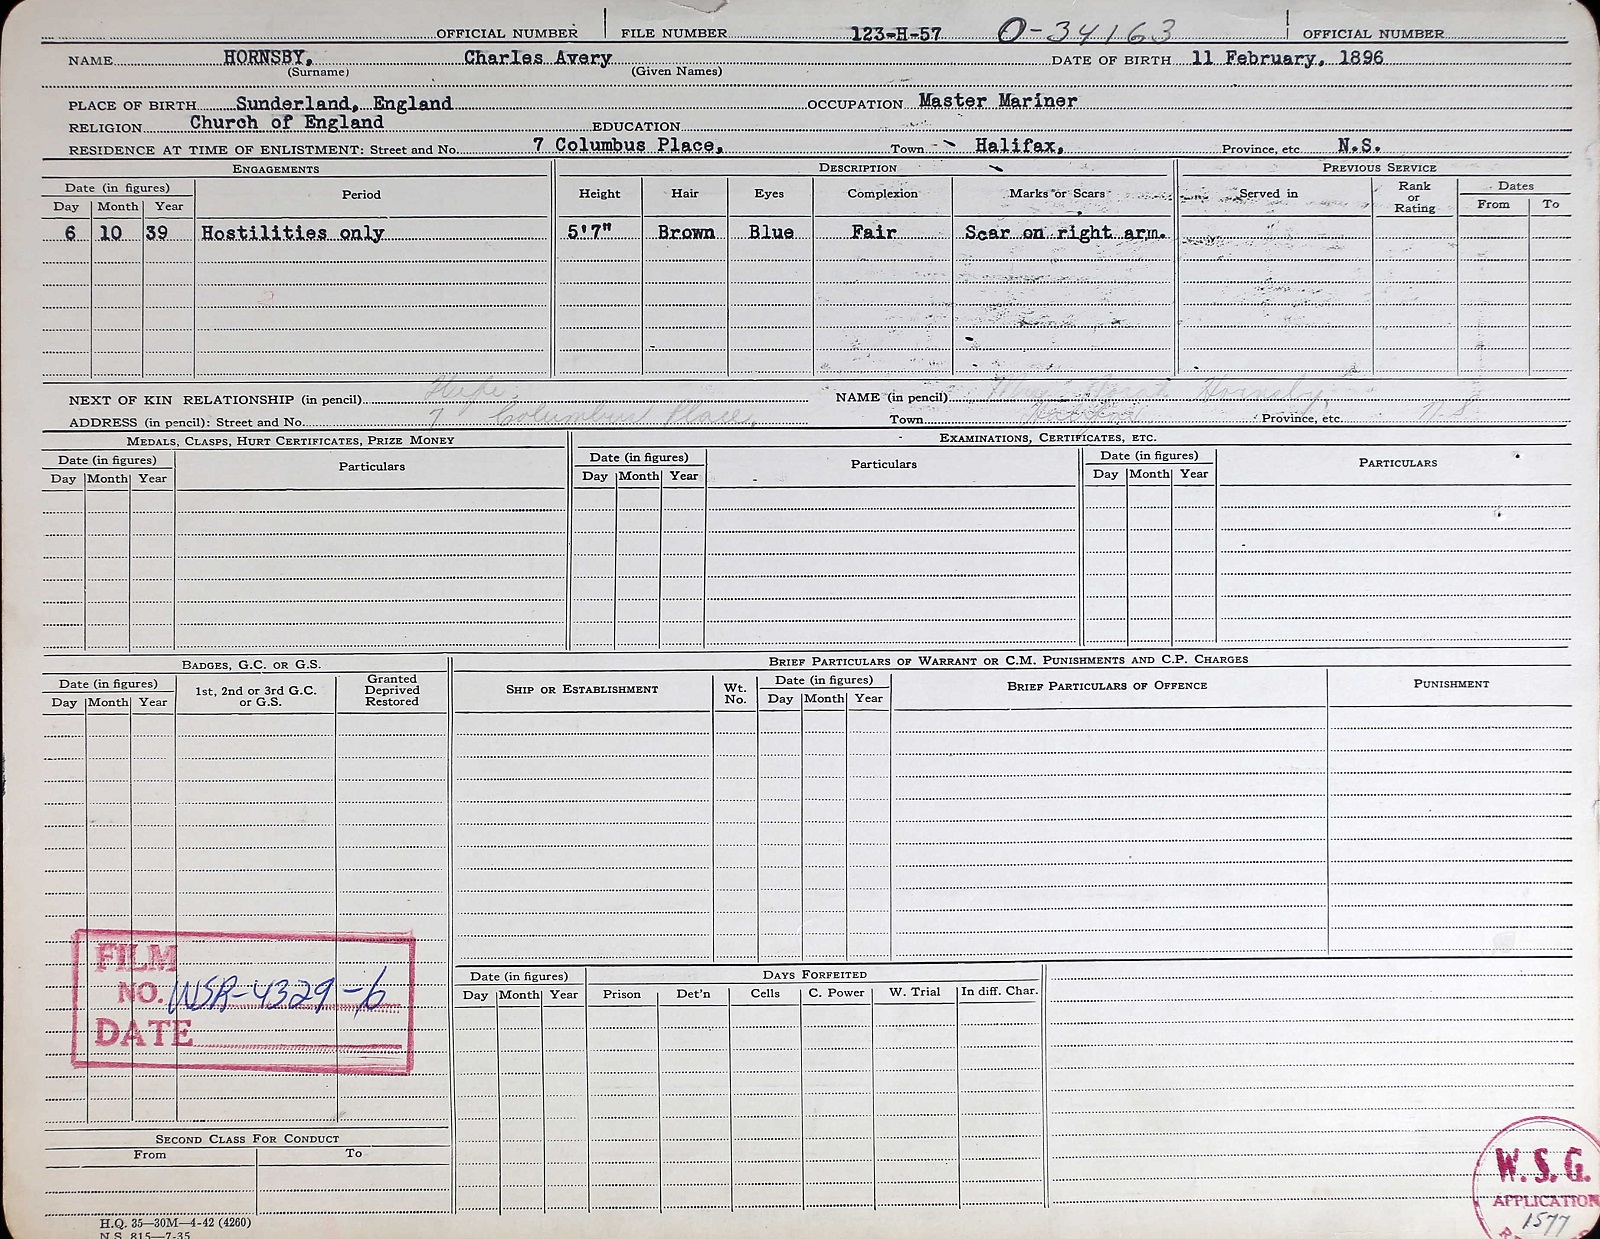 OFFICIAL NUMBER FILE NUMBER 123-H-57 O-34163 OFFICIAL NUMBER
NAME HORNSBY, Charles Avery DATE OF BIRTH 11 February, 1896
(Surname) (Given Names)
PLACE OF BIRTH Sunderland, England OCCUPATION Master Mariner
RELIGION Church of England EDUCATION
RESIDENCE AT TIME OF ENLISTMENT: Street and No. 7 Columbus Place, Town Halifax, Province, etc. N.S.
ENGAGEMENTS DESCRIPTION PREVIOUS SERVICE
Date (in figures) Period Height Hair Eyes Complexion Marks or Scars Served in Rank or Rating Dates
Day Month Year From To
6 10 39 Hostilities only 5'7" Brown Blue Fair Scar on right arm.
NEXT OF KIN RELATIONSHIP (in pencil) Wife, NAME (in pencil) Hornsby
ADDRESS (in pencil): Street and No. 7 Columbus Place, Town Halifax Province, etc. N.S.
MEDALS, CLASPS, HURT CERTIFICATES, PRIZE MONEY EXAMINATIONS, CERTIFICATES, ETC.
Date (in figures) Particulars Date (in figures) Particulars Date (in figures) PARTICULARS
Day Month Year Day Month Year Day Month Year
BADGES, G.C. OR G.S. BRIEF PARTICULARS OF WARRANT OR C.M. PUNISHMENTS AND C.P. CHARGES
Date (in figures) 1st, 2nd or 3rd G.C. or G.S. Granted Deprived Restored SHIP OR ESTABLISHMENT Wt. No. Date (in figures) BRIEF PARTICULARS OF OFFENCE PUNISHMENT
Day Month Year Day Month Year
FILM
NO. WSR-4329-6
DATE
Date (in figures) DAYS FORFEITED
Day Month Year Prison Det'n Cells C. Power W. Trial In diff. Char.
SECOND CLASS FOR CONDUCT
From To
W.S.G.
APPLICATION
1577
H.Q. 35—30M—4-42 (4260)
N.S. 815—7-35